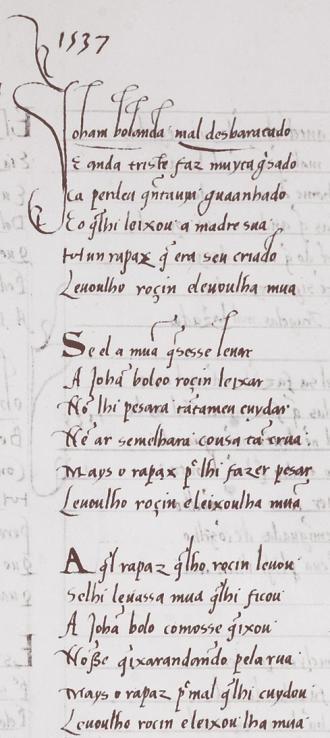 1537
Joham bolanda mal desbaratado
E anda triste faz muyta g̃sado
Ca perdeu q̃ntauȷ guaanhado
E o q̃lhi leixou a madre sua
hũ rapaz q̃ era seu criado
Leuoulho roçin eleuoulha mua
Se el a mua q̃sesse leuar
A Johã boloo roçin leixar
Nõ lhi pesara tã tameu cuydar
Nẽ ar semelhara cousa tã crua
Mays o rapax p̃ lhi fazer pesar
Leuoulho roçin e leixoulha mua
A q̃l rapaz q̃lho roçin leuou
Selhi leuassa mua q̃lhi ficou
A Johã bolo comosse q̃ixou
Nõsse q̃ixarandando pela rua
Mays o rapaz p̃ mal q̃lhi cuydou
Leuoulho rocin e leixou lha mua